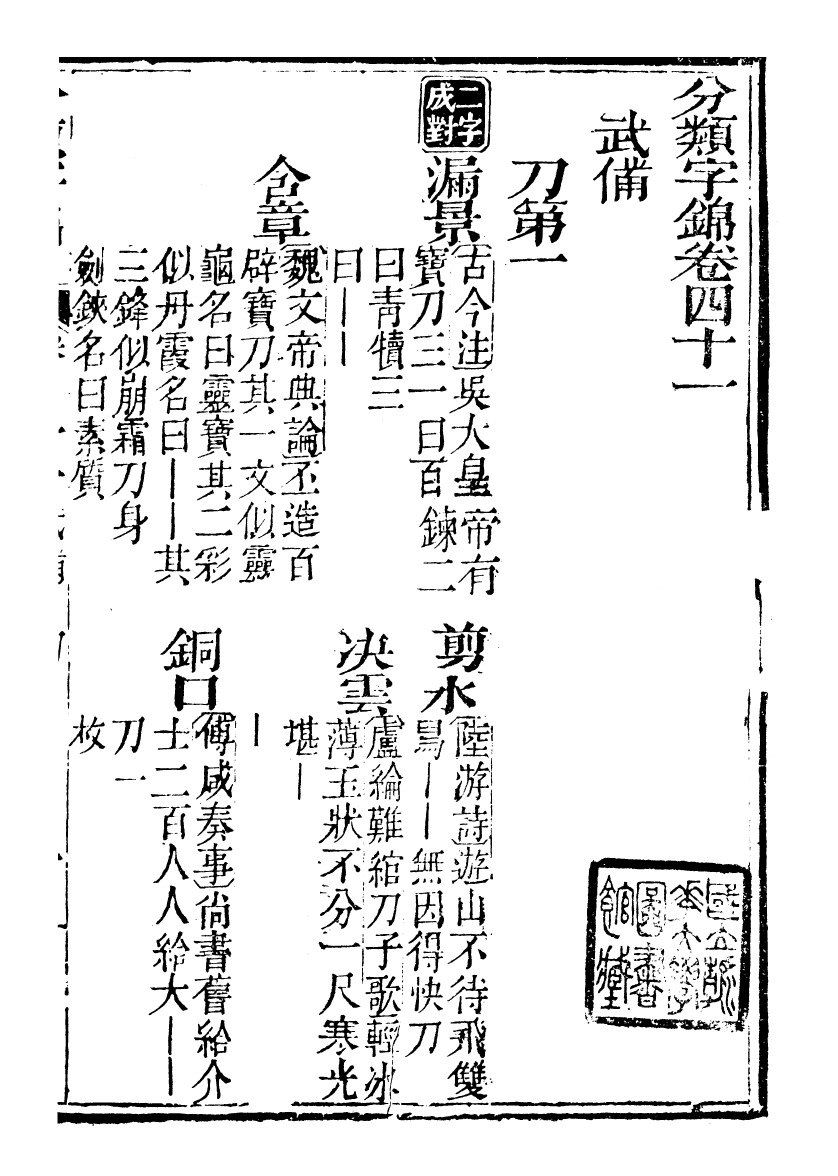 分類字錦卷四十一
武備
刀第一
二字成對
漏景
古今注吳大皇帝有
寶刀三一曰百鍊二
曰青犢三
曰｜｜
剪水
陸游詩遊山不待飛雙
舄｜｜無因得快刀
决雲
盧綸難綰刀子歌輕冰
薄玉狀不分一尺寒光
堪｜
｜
含章
魏文帝典論丕造百
辟寶刀其一文似靈
龜名曰靈寶其二彩
似丹霞名曰｜｜其
三鋒似崩霜刀身
劍鋏名曰素質
銅口
傅咸奏事尚書舊給介
士二百人人給大｜｜
刀一
枚
國立
圖書
館藏